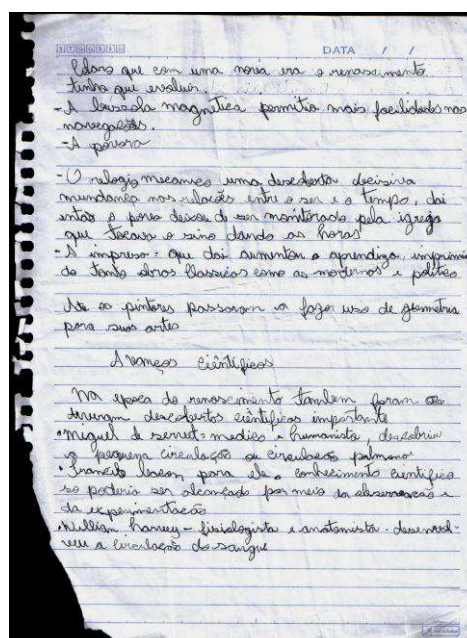 DATA / /
Claro que com uma nova era o renascimento
tinha que evoluir.
- A bussola magnética permitia mais facilidades nas
navegações.
- A polvora
- O relogio mecanico uma descoberta decisiva
mundança nas relações entre o ser e o tempo, dai
então o povo deixa de ser monitorado pela igreja
que tocava o sino dando as horas
- A impressa = que dai aumentou a aprendiza, imprimin
do tanto obras classicas como as modernas e politica.
Ate os pintores passaram a fazer uso de geometria
para suas artes
Avanços Ciêntificos
Na epoca do renascimento tambem foram
tiveram descobertas ciêntificas importante
• Miguel de servet = medico e humanista, descobriu
a pequena circulação ou circulação pulmonar
• Francis bacon, para ele o conhecimento cientifico
so poderia ser alcançado por meio da observação e
da experimentação
• William harvey - fisiologista e anatomista - desenvol-
veu a circulação do sangue